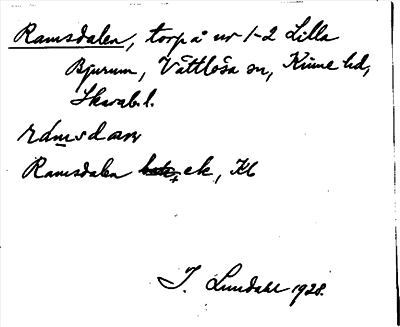 Ramsdalen, torp å nr 1-2 Lilla
Bjurum, Vättlösa sn, Kinne hd,
Skarab. l.
ramsdaɴ
Ramsdalen ek, Kb
I. Lundahl 1928.